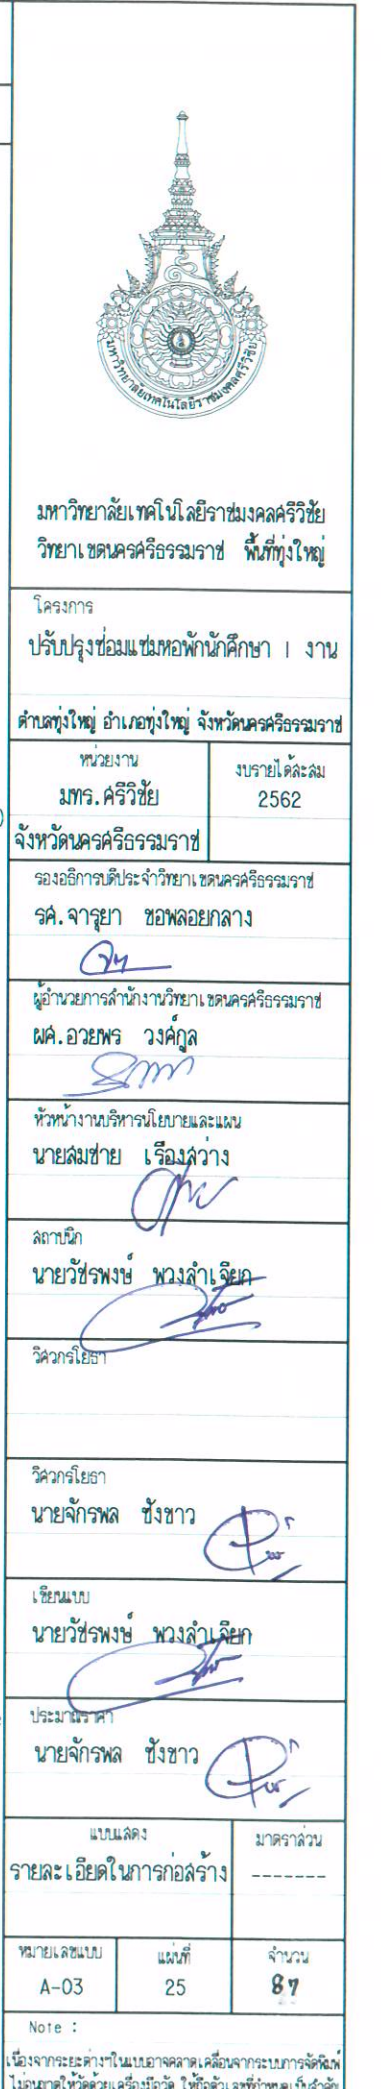 มหาวิทยาลัยเทคโนโลยีราชมงคลศรีวิชัย
มหาวิทยาลัยเทคโนโลยีราชมงคลศรีวิชัย
วิทยาเขตนครศรีธรรมราช พื้นที่ทุ่งใหญ่
โครงการ
ปรับปรุงซ่อมแซมหอพักนักศึกษา 1 งาน
ตำบลทุ่งใหญ่ อำเภอทุ่งใหญ่ จังหวัดนครศรีธรรมราช
หน่วยงาน
มทร.ศรีวิชัย
จังหวัดนครศรีธรรมราช
งบรายได้สะสม
2562
รองอธิการบดีประจำวิทยาเขตนครศรีธรรมราช
รศ.จารุยา ขอพลอยกลาง
ผู้อำนวยการสำนักงานวิทยาเขตนครศรีธรรมราช
ผศ.อวยพร วงศ์กูล
หัวหน้างานบริหารนโยบายและแผน
นายสมชาย เรืองสว่าง
สถาปนิก
นายวัชรพงษ์ พวงลำเจียก
วิศวกรโยธา
วิศวกรโยธา
นายจักรพล ชังขาว
เขียนแบบ
นายวัชรพงษ์ พวงลำเจียก
ประมาณราคา
นายจักรพล ชังขาว
แบบแสดง
รายละเอียดในการก่อสร้าง
มาตราส่วน
-------
หมายเลขแบบ
A-03
แผ่นที่
25
จำนวน
87
Note :
เนื่องจากระยะต่างๆในแบบอาจคลาดเคลื่อนจากระบบการจัดพิมพ์
ไม่อนุญาตให้วัดด้วยเครื่องมือวัด ให้ถือตัวเลขที่กำหนดเป็นสำคัญ